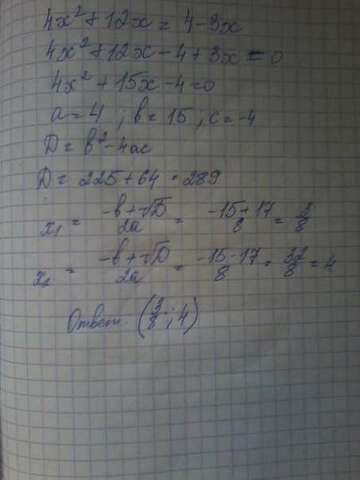 4x² + 12x = 4 - 3x
4x² + 12x - 4 + 3x = 0
4x² + 15x - 4 = 0
a = 4 ; b = 15 ; c = -4
D = b² - 4ac
D = 225 + 64 = 289
x₁ = -b+√D/2a = -15+17/8 = 2/8
x₂ = -b+√D/2a = -15-17/8 = 32/8 = 4
Ответ: (2/8 ; 4)